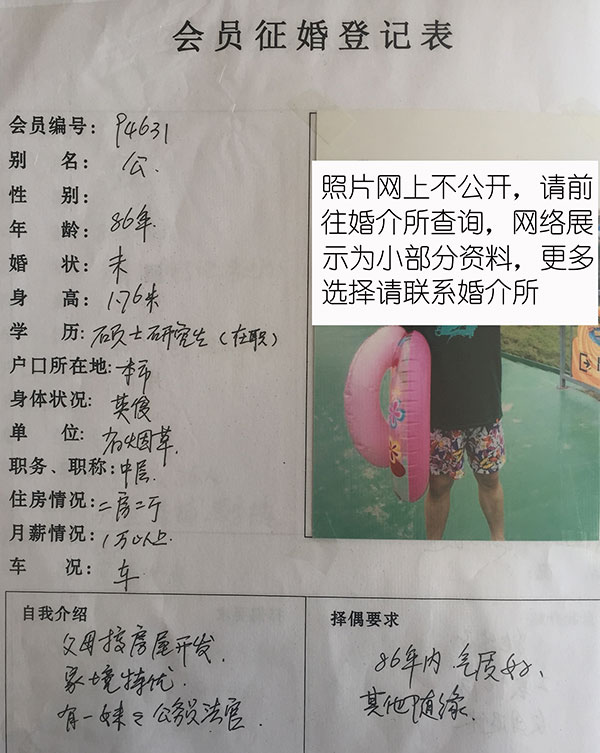 会员征婚登记表
会员编号: P4631
别 名: 公.
性 别:
年 龄: 86年
婚 状: 未
身 高: 1.76米
学 历: 硕士研究生(在职)
户口所在地: 本市
身体状况: 英俊
单 位: 省烟草
职务、职称: 中层
住房情况: 二房二厅
月薪情况: 1万以上
车 况: 车
照片网上不公开，请前
往婚介所查询，网络展
示为小部分资料，更多
选择请联系婚介所
自我介绍
父母搞房屋开发.
家境特优.
有一妹
公务员法官.
择偶要求
86年内 气质好、
其他随缘.